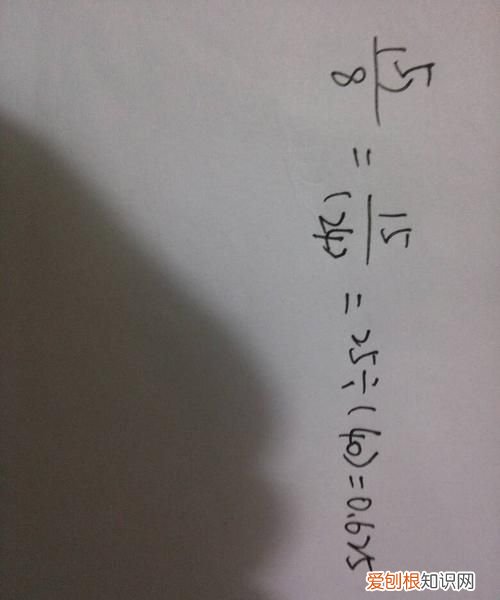 (5)/8 = 15/(24) = 25÷(40)=0.625
爱刨根知识网